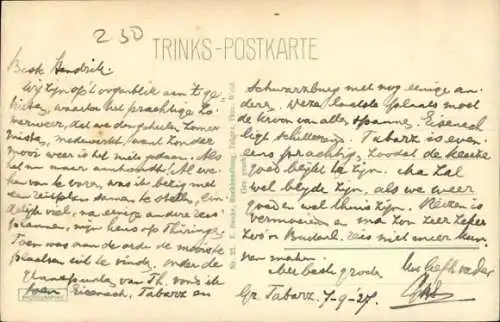 2 50
TRINKS-POSTKARTE
Beste Hendrik.
Wij zijn op 't oogenblik aan 't ge-
nieten, waartoe het prachtige zo-
merweer, dat we den geheelen zomer
misten, medewerkt, want zonder
mooi weer is het niets gedaan. Als
het nu maar aanhoudt. Al we-
ken van te voren, was ik bezig met
een reisplan samen te stellen, ein-
delijk viel, na eenige andere reis-
plannen, mijn keus op Thüringen.
Toen was aan de orde de mooiste
plaatsen uit te vinden. Onder de
glanspunten van Th. vond ik
toen Eisenach, Tabarz en
Schwarzburg met nog eenige an-
dere. Deze laatste plaats moet
de kroon van alles spannen. Eisenach
ligt schitterend. Tabarz is even-
eens prachtig, zoodat de keuze
goed blijkt te zijn. Ma zal
wel blijde zijn, als we weer
goed en wel thuis zijn. Reizen is
vermoeiend en ma zou zeer zeker
zoo'n Buitenl. reis niet meer kun-
nen maken.
Met beste groete
Uw liefh. vader
Gr. Tabarz. 7-9-'27.
Nr. 21.